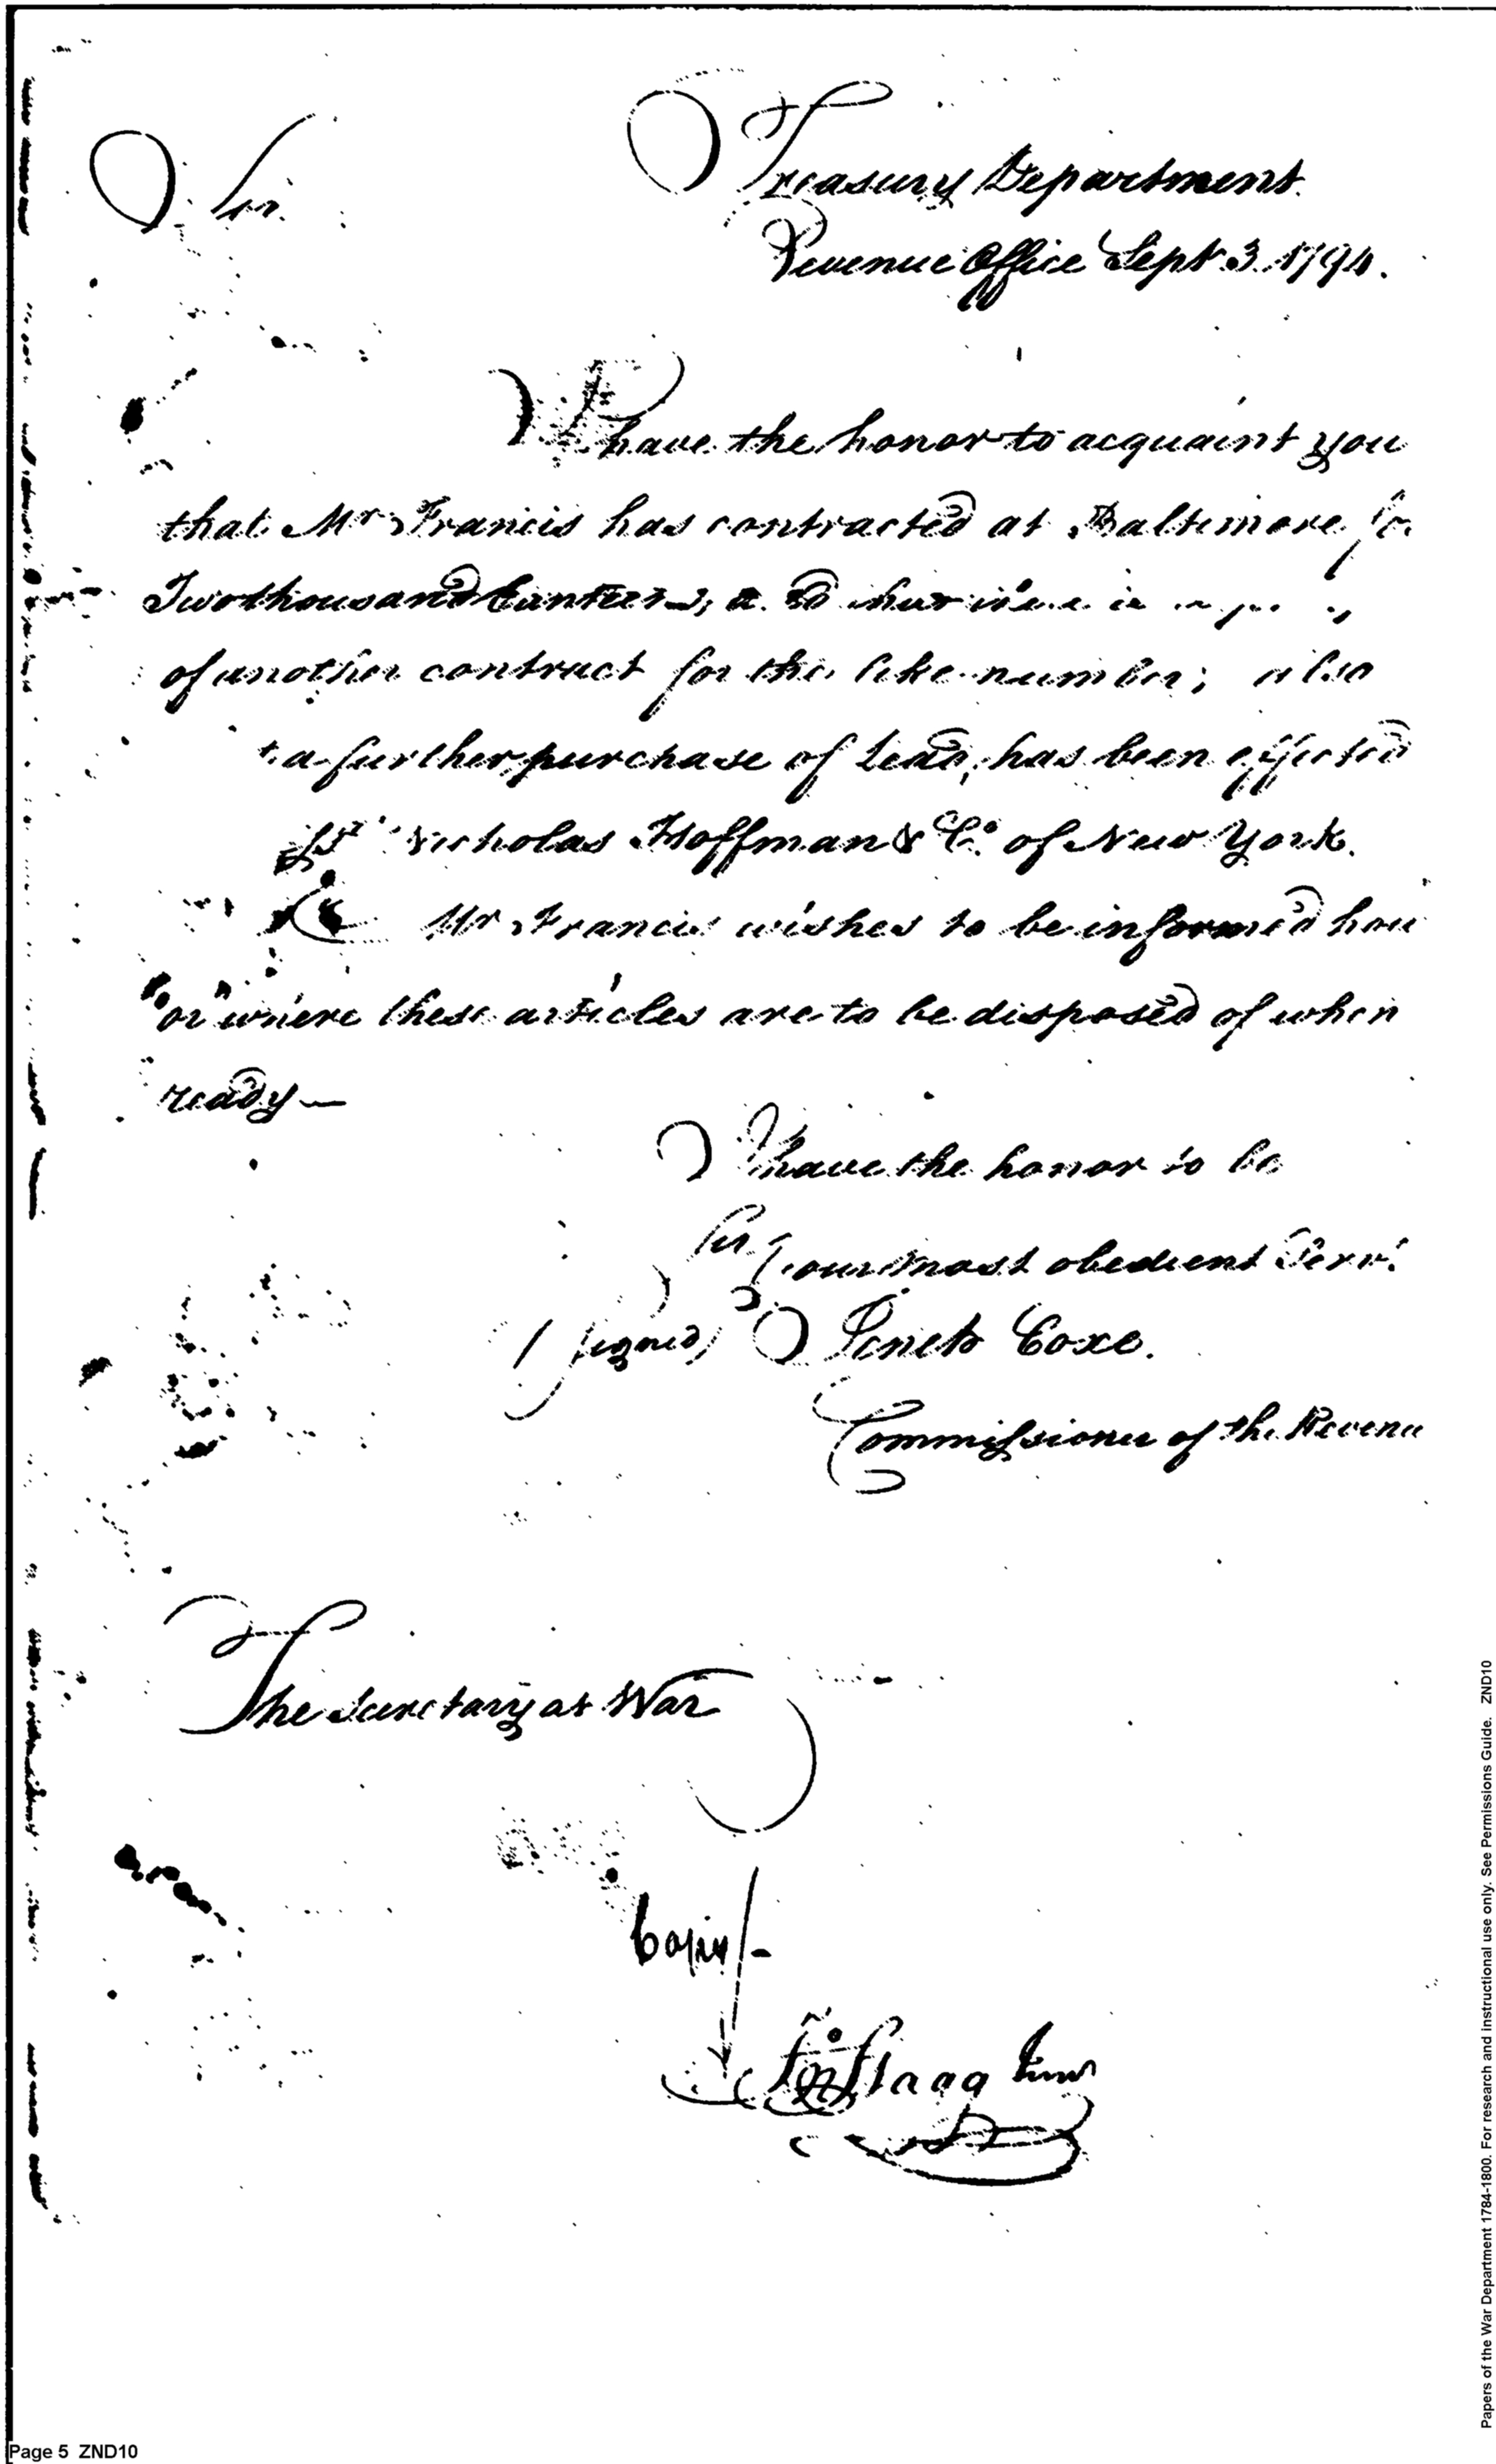 Treasury Department.
Revenue Office Sept. 3. 1794.
Sir.
I have the honor to acquaint you
that Mr Francis has contracted at Baltimore for
Two thousand Canteens,
of another contract for the like number; also
a further purchase of Lead, has been effected
Nicholas Hoffman & Co. of New York.
Mr Francis wishes to be informed how
or where these articles are to be disposed of when
ready—
I have the honor to be
Sir
Your most obedient Servt.
(signed) Tench Coxe.
Commissioner of the Revenue
The Secretary at War
Copy/-
Flagg Junr
Papers of the War Department 1784-1800. For research and instructional use only. See Permissions Guide. ZND10
Page 5 ZND10